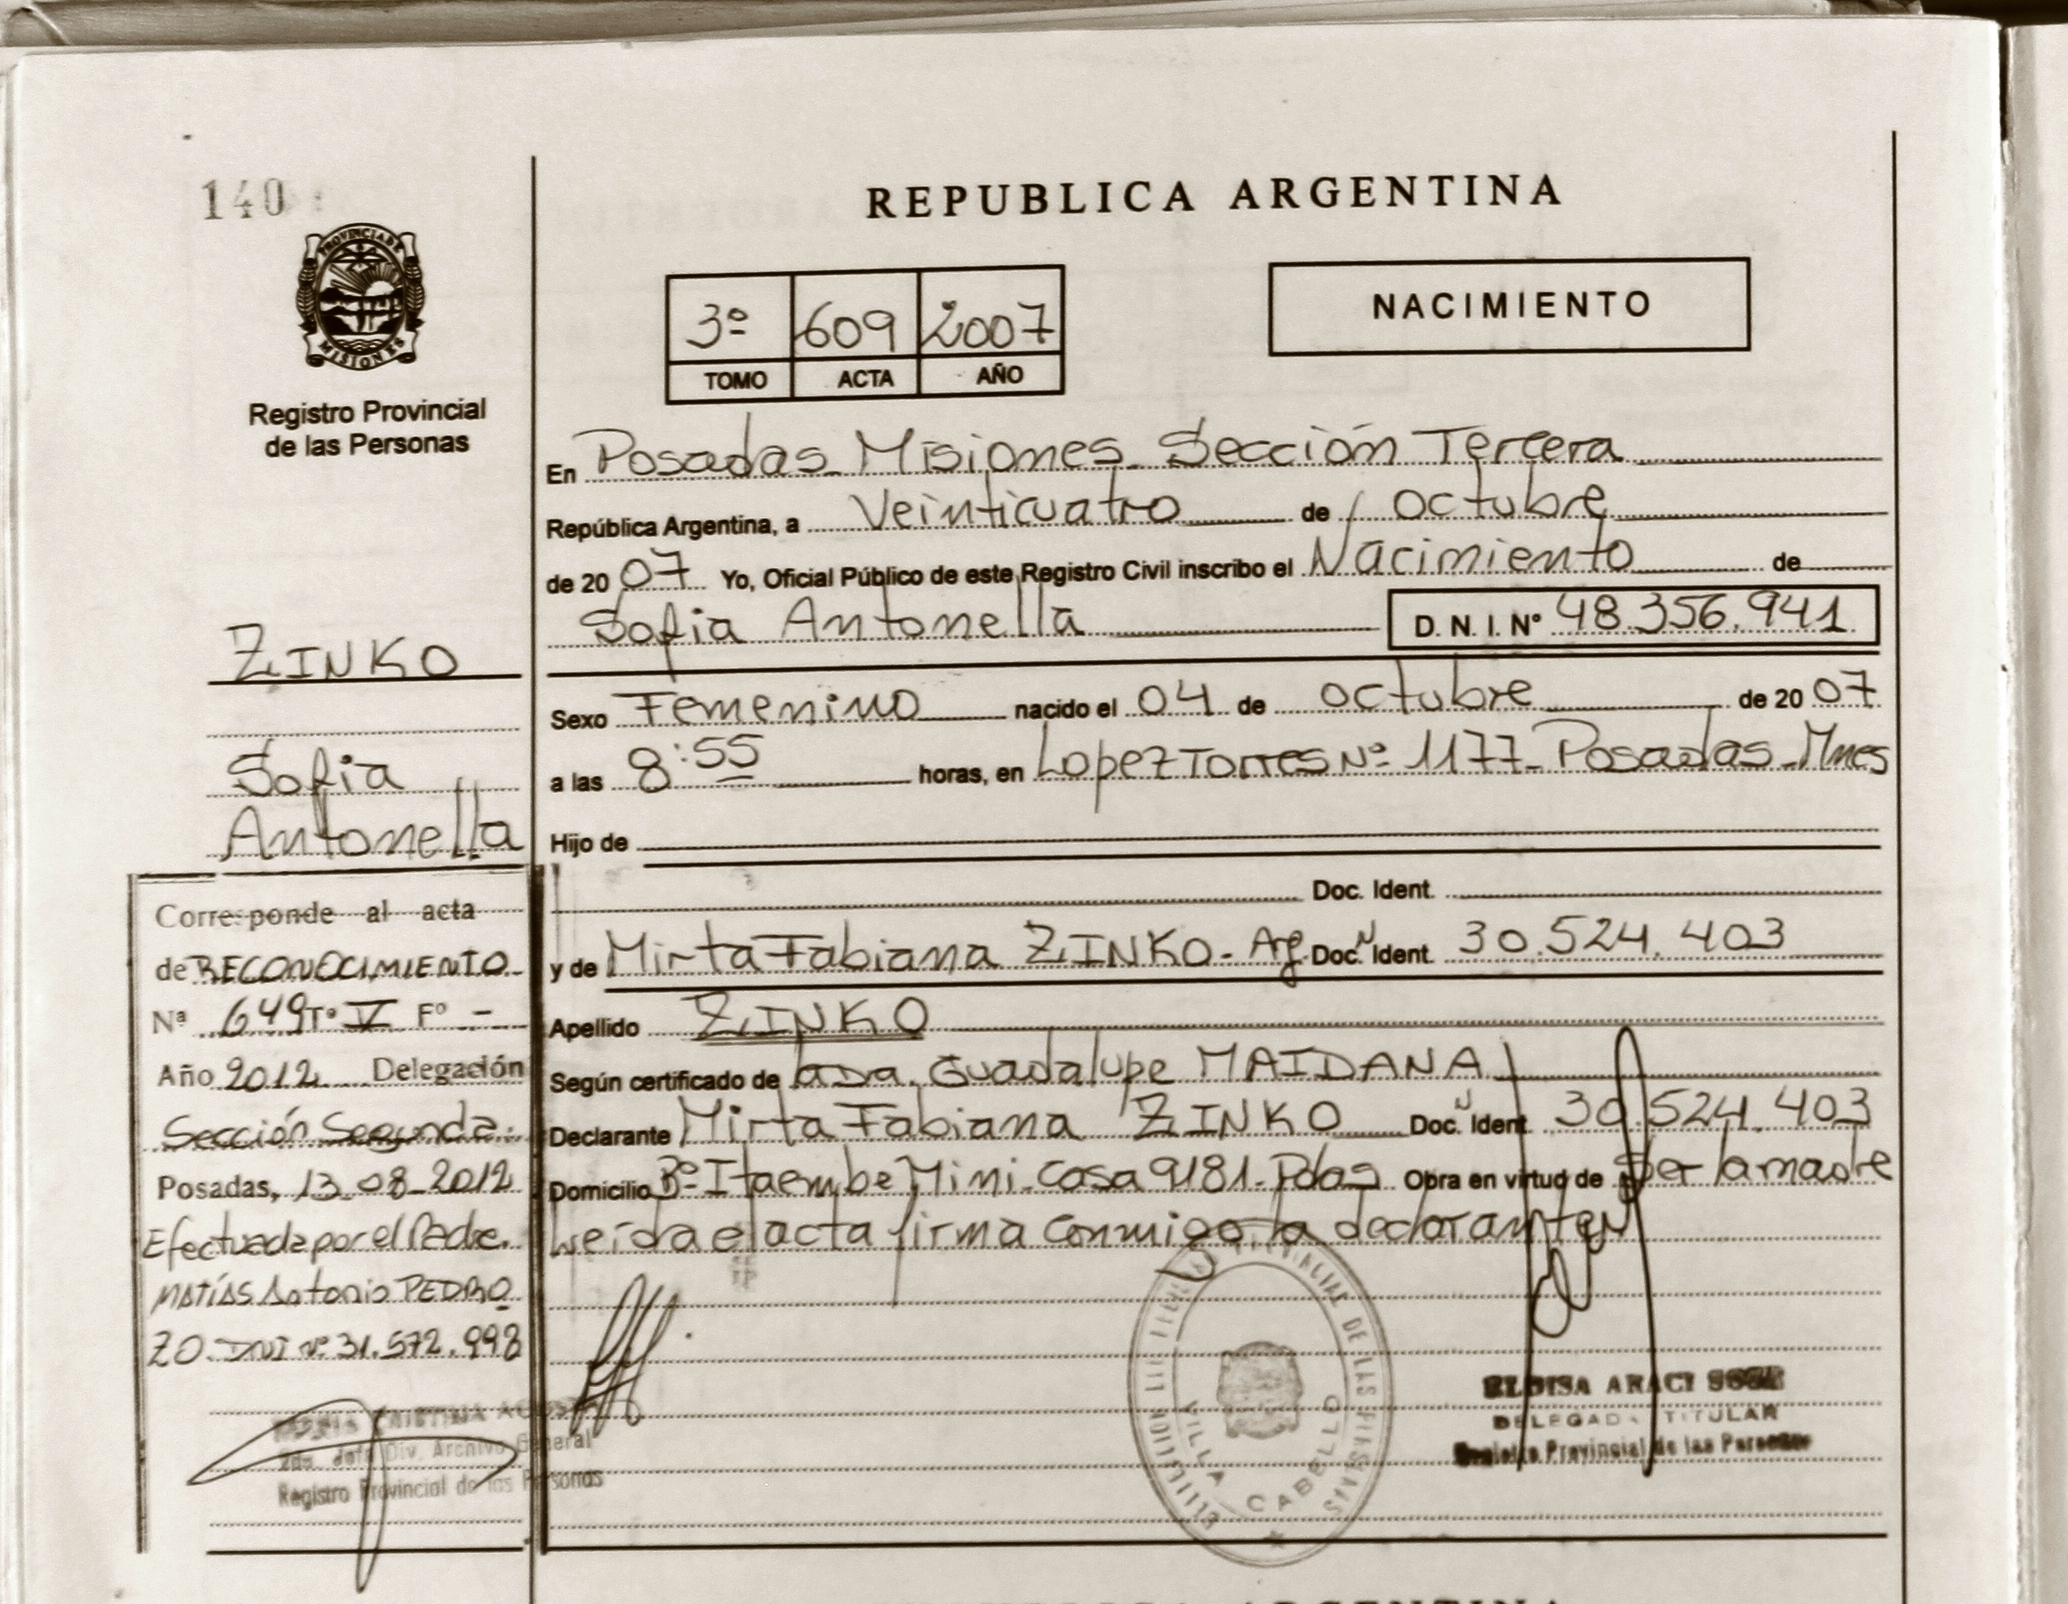 140
REPUBLICA ARGENTINA
PROVINCIA DE
MISIONES
Registro Provincial
de las Personas
3º 609 2007
TOMO ACTA AÑO
NACIMIENTO
En Posadas Misiones Sección Tercera
República Argentina, a Veinticuatro de octubre
de 2007 Yo, Oficial Público de este Registro Civil inscribo el Nacimiento de
Sofia Antonella D. N. I. Nº 48.356.941
Sexo Femenino nacido el 04 de octubre de 2007
a las 8:55 horas, en Lopez Torres Nº 1177 - Posadas - Mnes
Hijo de
Doc. Ident.
y de Mirta Fabiana ZINKO - Arg Doc. N Ident. 30.524.403
Apellido ZINKO
Según certificado de Guadalupe MAIDANA
Declarante Mirta Fabiana ZINKO Doc. N Ident. 30.524.403
Domicilio Bº Itaembe Mini Casa 9181 - Pdas Obra en virtud de Ser la madre
Leída el acta firma conmigo la declarante
ZINKO
Sofia
Antonella
Corresponde al acta
de RECONOCIMIENTO
Nª 649 Tº V Fº -
Año 2012 Delegación
Sección Segunda
Posadas, 13-08-2012
Efectuada por el Padre
MATÍAS Antonio PEDRO
ZO. DNI Nº 31.572.998
CRISTINA
Jefe Div. Archivo General
Registro Provincial de las Personas
PROVINCIAL DE LAS PERSONAS
VILLA CABELLO
ELOISA ARACI
DELEGADA TITULAR
Registro Provincial de las Personas